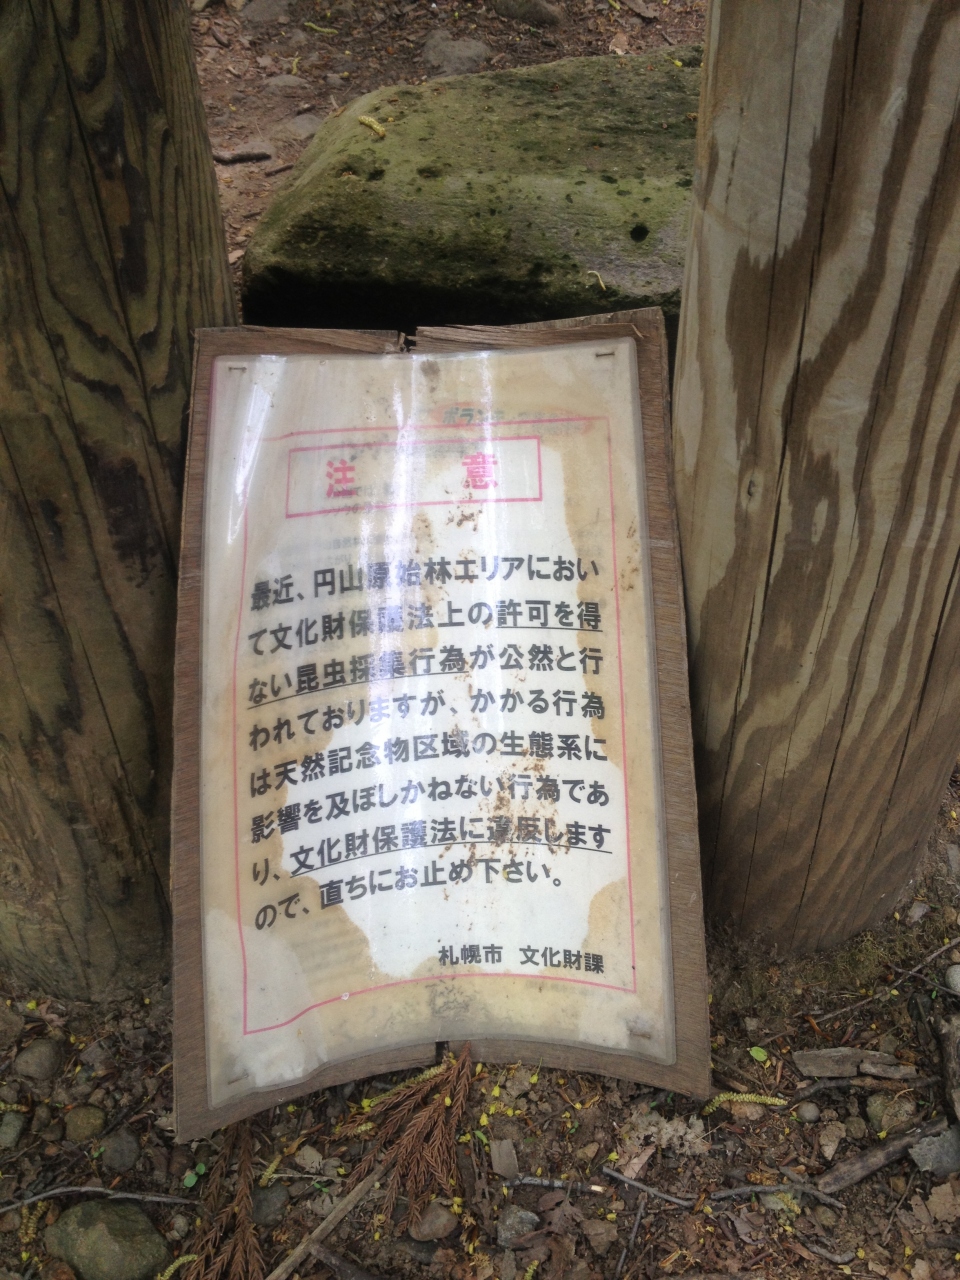 ボラン
注 意
最近、円山原始林エリアにおい
て文化財保護法上の許可を得
ない昆虫採集行為が公然と行
われておりますが、かかる行為
は天然記念物区域の生態系に
影響を及ぼしかねない行為であ
り、文化財保護法に違反します
ので、直ちにお止め下さい。
札幌市 文化財課